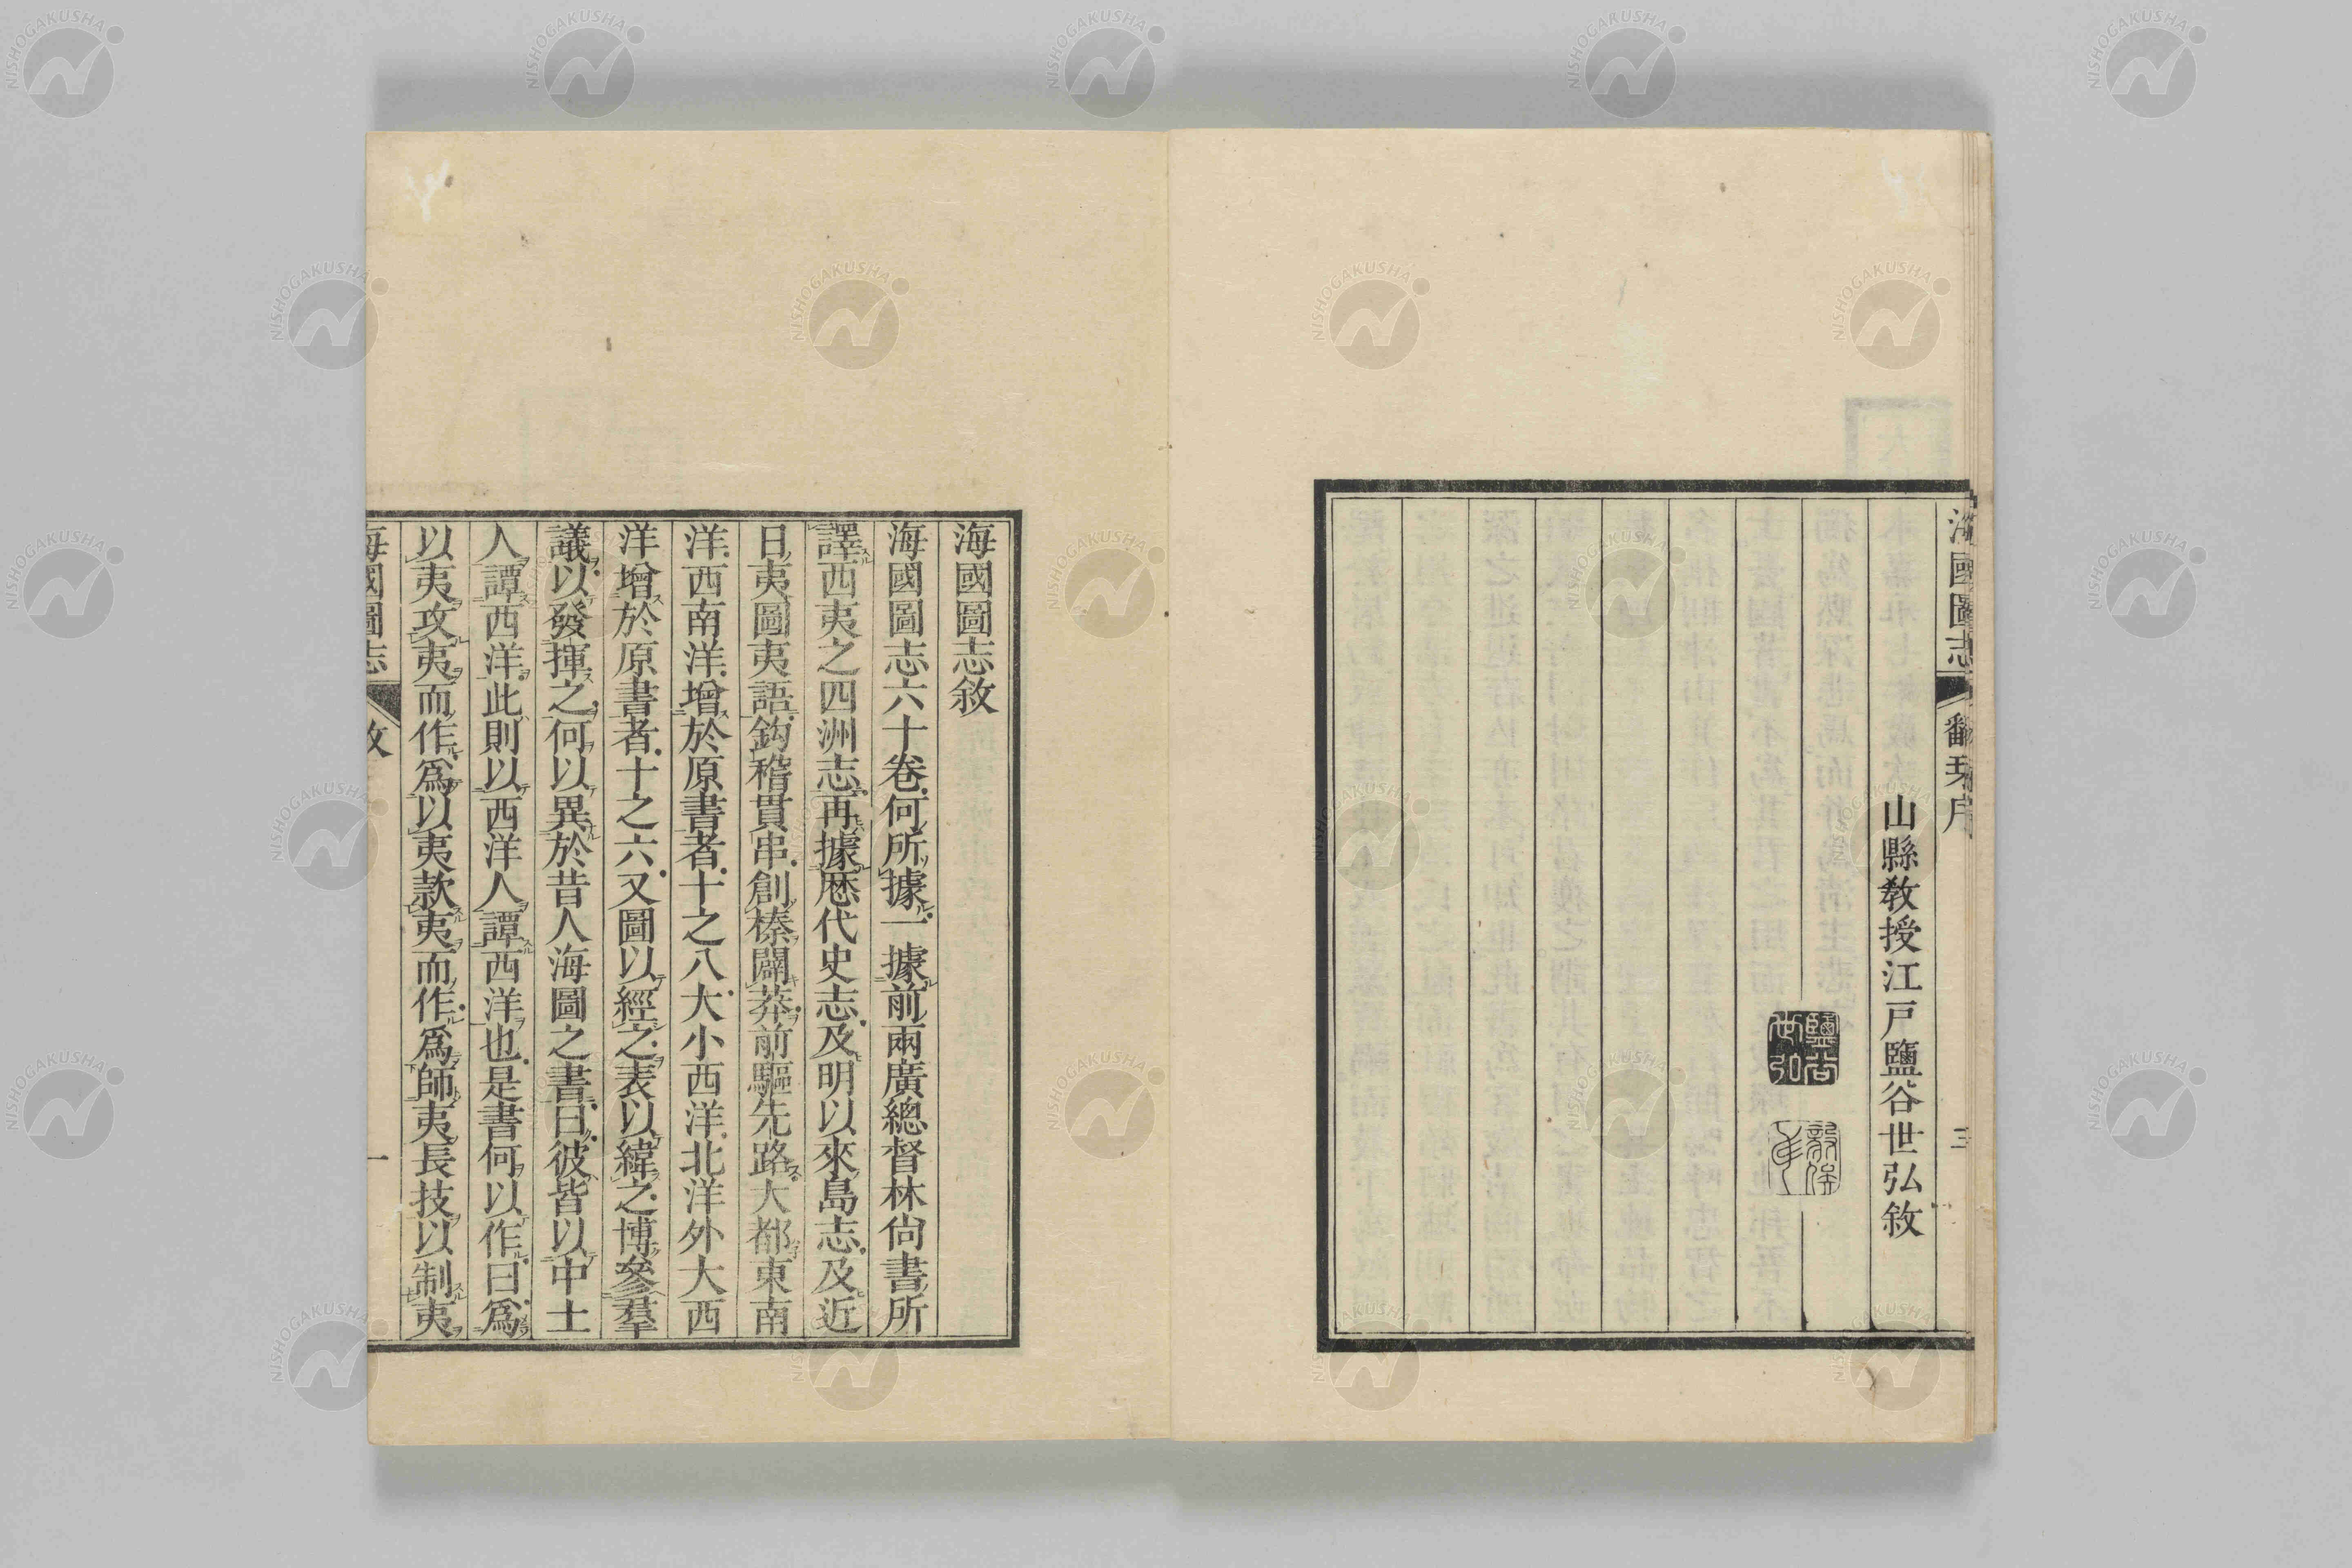 海國圖志
翻栞序
三
山縣教授江戸鹽谷世弘敘
鹽谷世弘
毅侯
海國圖志敘
海國圖志六十卷何所據一據前兩廣總督林尙書所
譯西夷之四洲志再據歷代史志及明以來島志及近
日夷圖夷語鈎稽貫串創榛闢莽前驅先路大都東南
洋西南洋增於原書者十之八大小西洋北洋外大西
洋增於原書者十之六又圖以經之表以緯之博參羣
議以發揮之何以異於昔人海圖之書曰彼皆以中土
人譚西洋此則以西洋人譚西洋也是書何以作曰爲
以夷攻夷而作爲以夷款夷而作爲師夷長技以制夷
海國圖志
敘
一
NISHOGAKUSHA